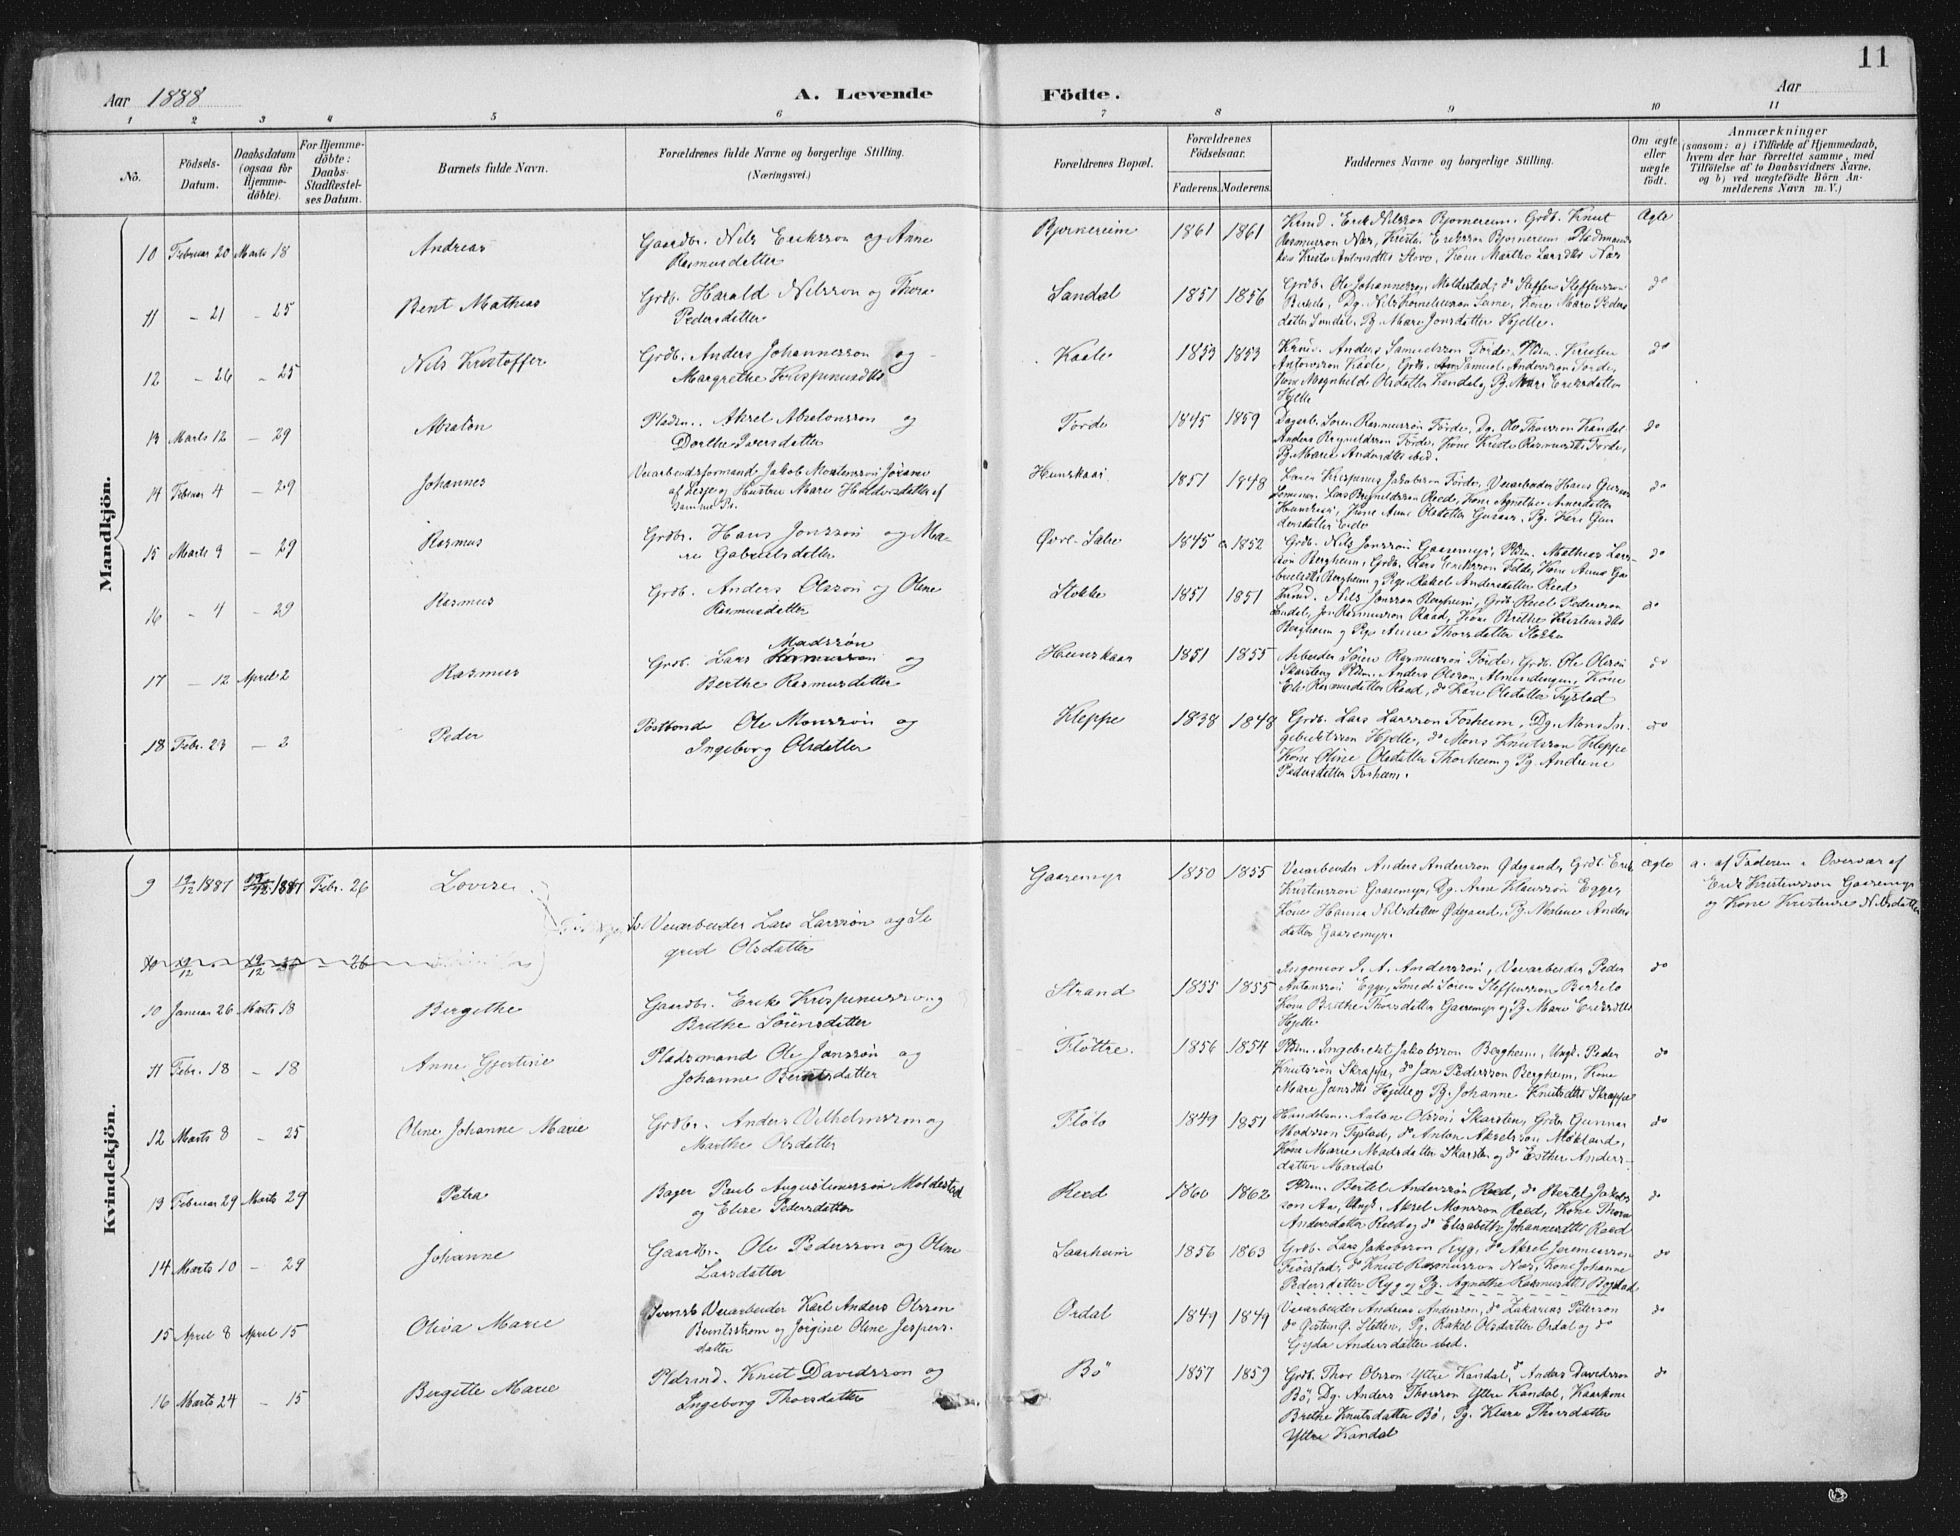 11
Aar 1888 A. Levende Födte. Aar
1 2 3 4 5 6 7 8 9 10 11
No. Födsels-Datum. Daabsdatum (ogsaa for Hjemme-döbte). For Hjemme-döbte: Daabs-Stadfæstel-ses Datum. Barnets fulde Navn. Forældrenes fulde Navne og borgerlige Stilling. (Næringsvei.) Forældrenes Bopæl. Forældrenes Födselsaar. Faderens. Moderens. Faddernes Navne og borgerlige Stilling. Om ægte eller uægte födt. Anmærkninger (saasom: a) i Tilfælde af Hjemmedaab, hvem der har forrettet samme, med Tilföielse af to Daabsvidners Navne, og b) ved uægtefödte Börn An-melderens Navn m. V.)
Mandkjön.
10 Februar 20 Marts 18 Andreas Gaardbr. Nils Eriksson og Anne
Rasmusdatter Bjørnereim 1861 1861 Erik Nilsson Bjørnereim, Grdb. Knut
Rasmusson Nær, Ægte
11 - 21 - 25 Bent Mathias Grdb. Harald Nilsson og Thora
Pedersdatter Sandal 1851 1856 Grdb. Ole Johannesson Moldestad, do Steffen Steffensson
Birkelo, Dg. Nils
datter Sandal, Pg. Mari Jonsdatter Hjelle. do
12 - 26 - 25 Nils Kristoffer Grdb. Anders Johannesson og
Margrethe Krispinusdtr Kaale 1853 1853 Anders Samuelsson Førde, Pldsm. Kristen
Antonsson Kaale, Grdb. Samuel Andersson Førde,
Kone Magnhilde Olsdatter Kandal og Pg. Mari Eriksdatter
Hjelle do
13 Marts 12 - 29 Absalon Pladsm. Aksel Absalonsson og
Dorthe Iversdatter Førde 1845 1859 Sören Rasmusson Förde, Dg. Ole Thorsson Kandal
Anders Brynildsson Förde, Kone Kristi Rasmusdtr Førde,
Pg. Marie Andersdtr ibid. do
14 Februar 4 - 29 Johannes Veiarbeidsformand Jakob Mortensson
af Lesje og Hustru Mari Halvorsdatter af
samme Pr. Hunskaar 1851 1848 Krispinus Jakobsson Førde, Veiarbeider Hans
Lars Brynildsson Reed, Kone Agnethe
Hunskaar, Kone Anne Olsdatter do
15 Marts 9 - 29 Rasmus Grdbr. Hans Jonsson og Ma-
ri Gabrielsdatter Øvre- 1845 1852 Grdb. Nils Jonssön Gaaremyr, Pldsm. Mathias Lars-
sön Bergheim, Grdb. Lars Eriksson Felde, Kone Anna Ga-
brielsdtr Bergheim og Pige Rakel Andersdatter Reed do
16 - 4 - 29 Rasmus Grdb. Anders Olsson og Oline
Rasmusdatter Stokke 1851 1851 Nils Jonsson Bergheim, Grdb. Pedersson
Sandal, Jon Rasmusson Raad, Kone Brithe Kristensdtr
Bergheim og Pige Anne Thorsdatter Stokke do
17 - 12 April 2 Rasmus Madssön
Grdb. Lars Rasmusson og
Berthe Rasmusdatter Hunskaar 1851 1855 Arbeider Sören Rasmusson Förde, Grdb. Ole Olsson
Skarsten, Pldsm. Anders Olsson Almenningen, Kone
Eli Rasmusdatter Raad, do Kari Olsdatter Tystad do
18 Febr. 23 - 2 Peder Postbonde Ole Monsson og
Ingeborg Olsdatter Kleppe 1838 1848 Grdb. Lars Larsson Forheim, Dg. Mons In-
gebriktsson Hjelle, do Mons Knutsson Kleppe
Kone Oline Olsdatter Thorheim og Pg. Andrine
Pedersdatter Forheim. do
Kvindekjön.
9 19/12 1887 19/12 1887 Febr. 26 Lovise Gaaremyr 1850 1855 Veiarbeider Anders Andersson Ødegaard, Grdb. Erik
Kristensson Gaaremyr, Dg. Arne Klausson Egge,
Kone Hanna Nilsdatter Ødegaard, Pg. Anders
datter Gaaremyr. ægte a. af Faderen i Overvær af
Erik Kristensson Gaaremyr
og Kone Kristense Nilsdatter
Veiarbeider Lars Larsson og Si-
grid Olsdatter
10 19/12 19/12 - 26
10 Januar 26 Marts 18 Bergithe Gaardbr. Erik Krispinusson og
Brithe Sörensdatter Strand 1855 1855 Ingeniør I. A. Anderssön, Veiarbeider Peder
Antonssön Egge, Smed Sören Steffensson Birkelo
Kone Brithe Thorsdatter Gaaremyr og Pg. Mari Eriksdtr
Hjelle do
11 Febr. 18 - 18 Anne Gjertine Pladsmand Ole Jonssön og
Johanne Berntsdatter Fløttre. 1856 1854 Pldsm. Ingebrikt Jakobsson Bergheim, Ungk. Peder
Knutssön Skrappe, do Jon Pedersson Bergheim, Kone
Mari Jonsdtr Hjelle og Pg. Johanne Knutsdtr Skrappe do
12 Marts 8 - 25 Oline Johanne Marie Grdbr. Anders Vilhelmsson og
Marthe Olsdatter Fløto 1849 1851 Handelsm. Anton Olssön Skarsten, Grdb. Gunnar
Madsson Tystad, do Anton Akselsson Mykland,
Kone Marie Madsdatter Skarsten og do Esther Anders-
datter Mardal do
13 Februar 29 Marts 29 Petra Bager Paul Augustinusson Moldestad
og Elise Pedersdatter Reed 1860 1862 Pldsm. Bertel Anderssön Reed, do Bertel Jakobs
son Aa, Ungk. Aksel Monsson Reed, Kone Thora
Andersdatter Reed og do Elisabeth Johannesdtr Reed do
14 Marts 10 - 29 Johanne Gaardbr. Ole Pedersson og Oline
Larsdatter Saarheim 1856 1863 Grdb. Lars Jakobsson Ryg, do Aksel Jeremiasson
do Knut Rasmusson Nær, Kone Johanne
Pedersdatter Ryg og Pg. Agnethe Rasmusdtr do
15 April 8 April 15 Oliva Marie Svensk Veiarbeider Karl Anders Olsson
Berntsstrøm og Jörgine Oline Jespers-
datter Ordal 1849 1849 Veiarbeider Andreas Andersson, do Zakarias Peterson
do Øistein O. Sletten, Pg. Rakel Olsdatter Ordal og do
Gyda Andersdatter ibid. do
16 Marts 24 - 15 Bergitte Marie Pldsmd. Knut Davidsson og
Ingeborg Thorsdatter Bö 1857 1859 Grdb. Thor Olsson Yttre Kandal, do Anders Davidsson
Bö, Dg. Anders Thorsson Yttre Kandal, Kaarkone
Brithe Knutsdatter Bö, Pg. Klara Thorsdatter
Yttre Kandal do